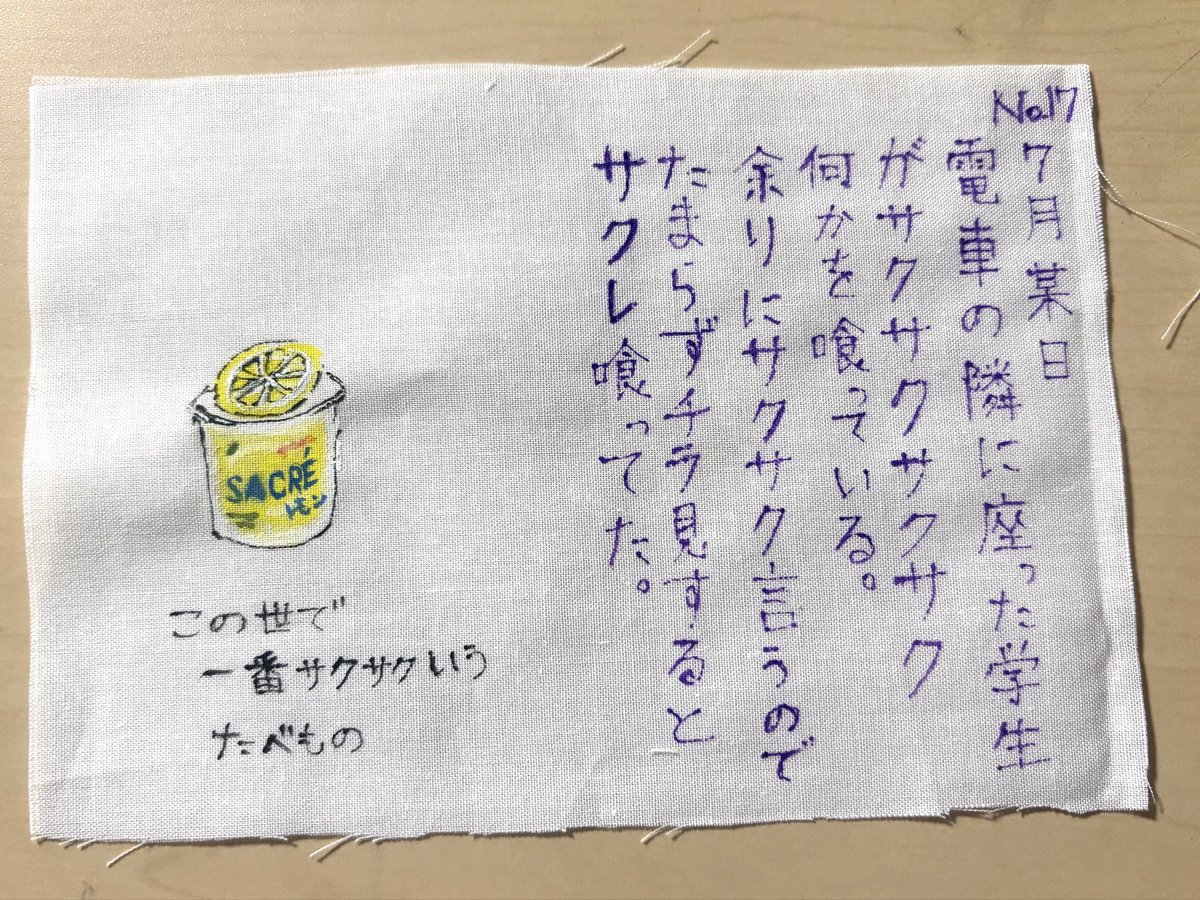 No.17
7月某日
電車の隣に座った学生
がサクサクサクサクサク
何かを喰っている。
余りにサクサク言うので
たまらずチラ見すると
サクレ喰ってた。
SACRÉ
レモン
この世で
一番サクサクいう
たべもの